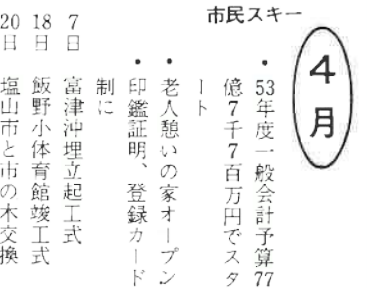 市民スキー
4月
・53年度一般会計予算77
億7千7百万円でスタ
ート
・老人憩いの家オープン
・印鑑証明、登録カード
制に
7日　富津沖埋立起工式
18日　飯野小体育館竣工式
20日　塩山市と市の木交換